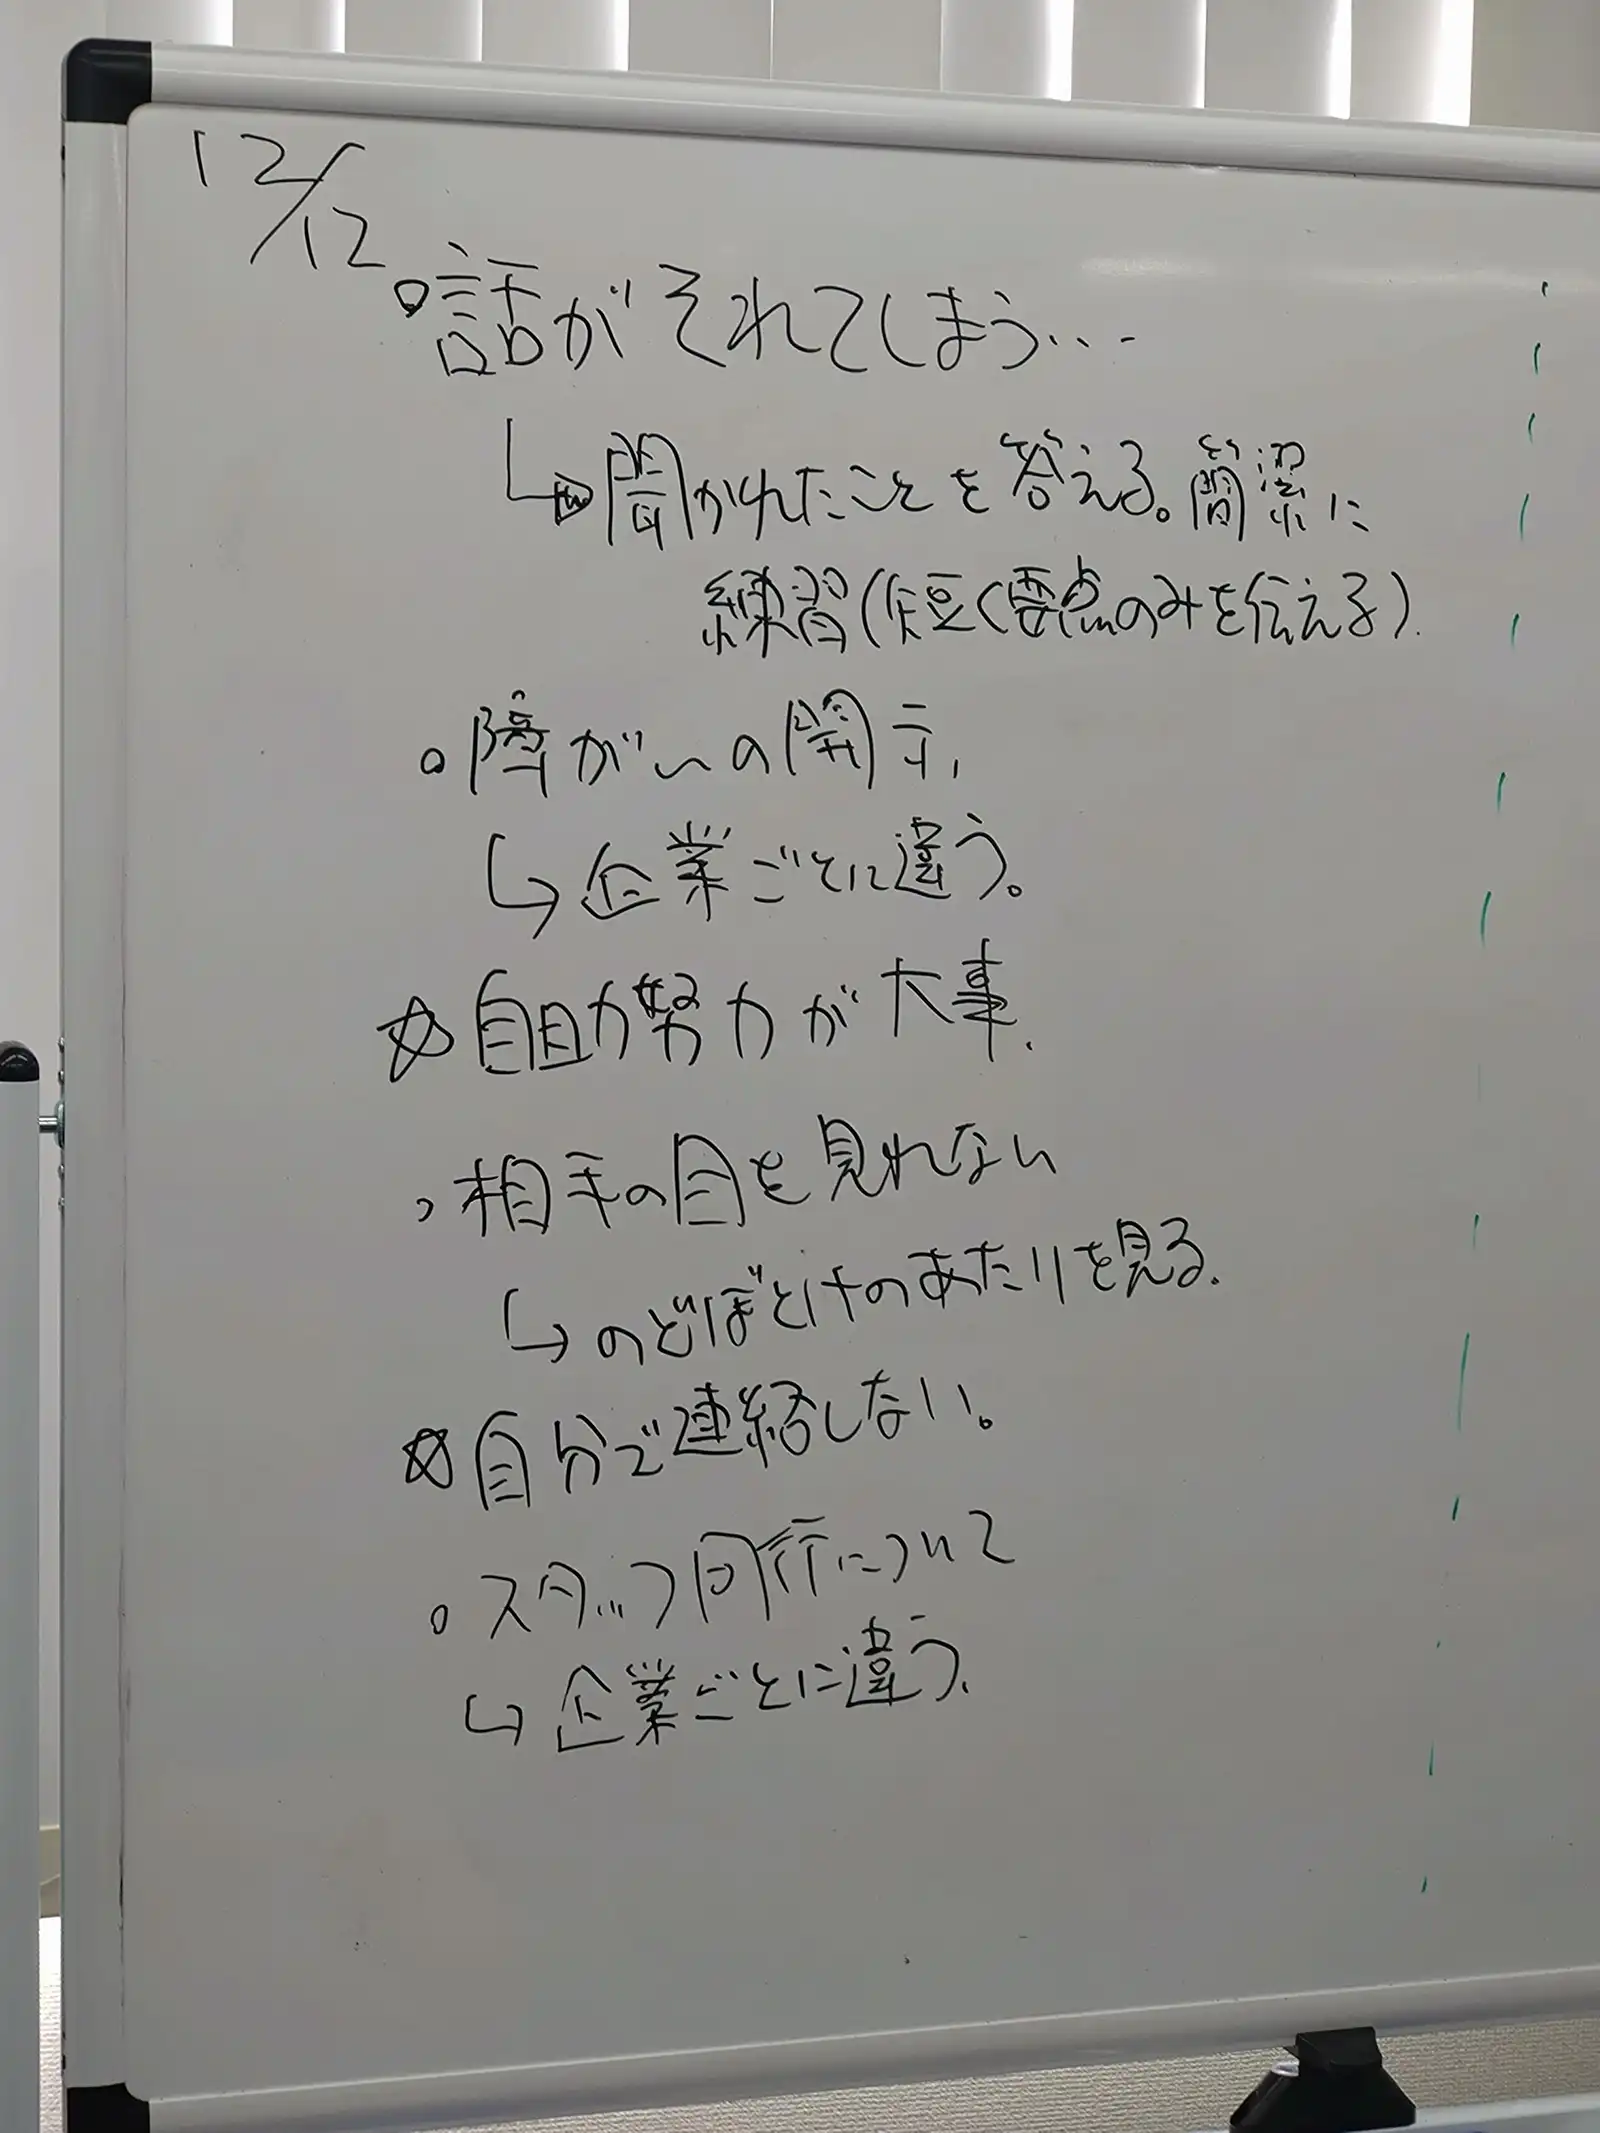 12/12
○話がそれてしまう…
↳聞かれたことを答える。簡潔に
練習(短く要点のみを伝える).
○障がいの開示,
↳企業ごとに違う。
☆自助努力が大事.
○相手の目を見れない
↳のどぼとけのあたりを見る.
☆自分で連絡しない。
○スタッフ同行について
↳企業ごとに違う.